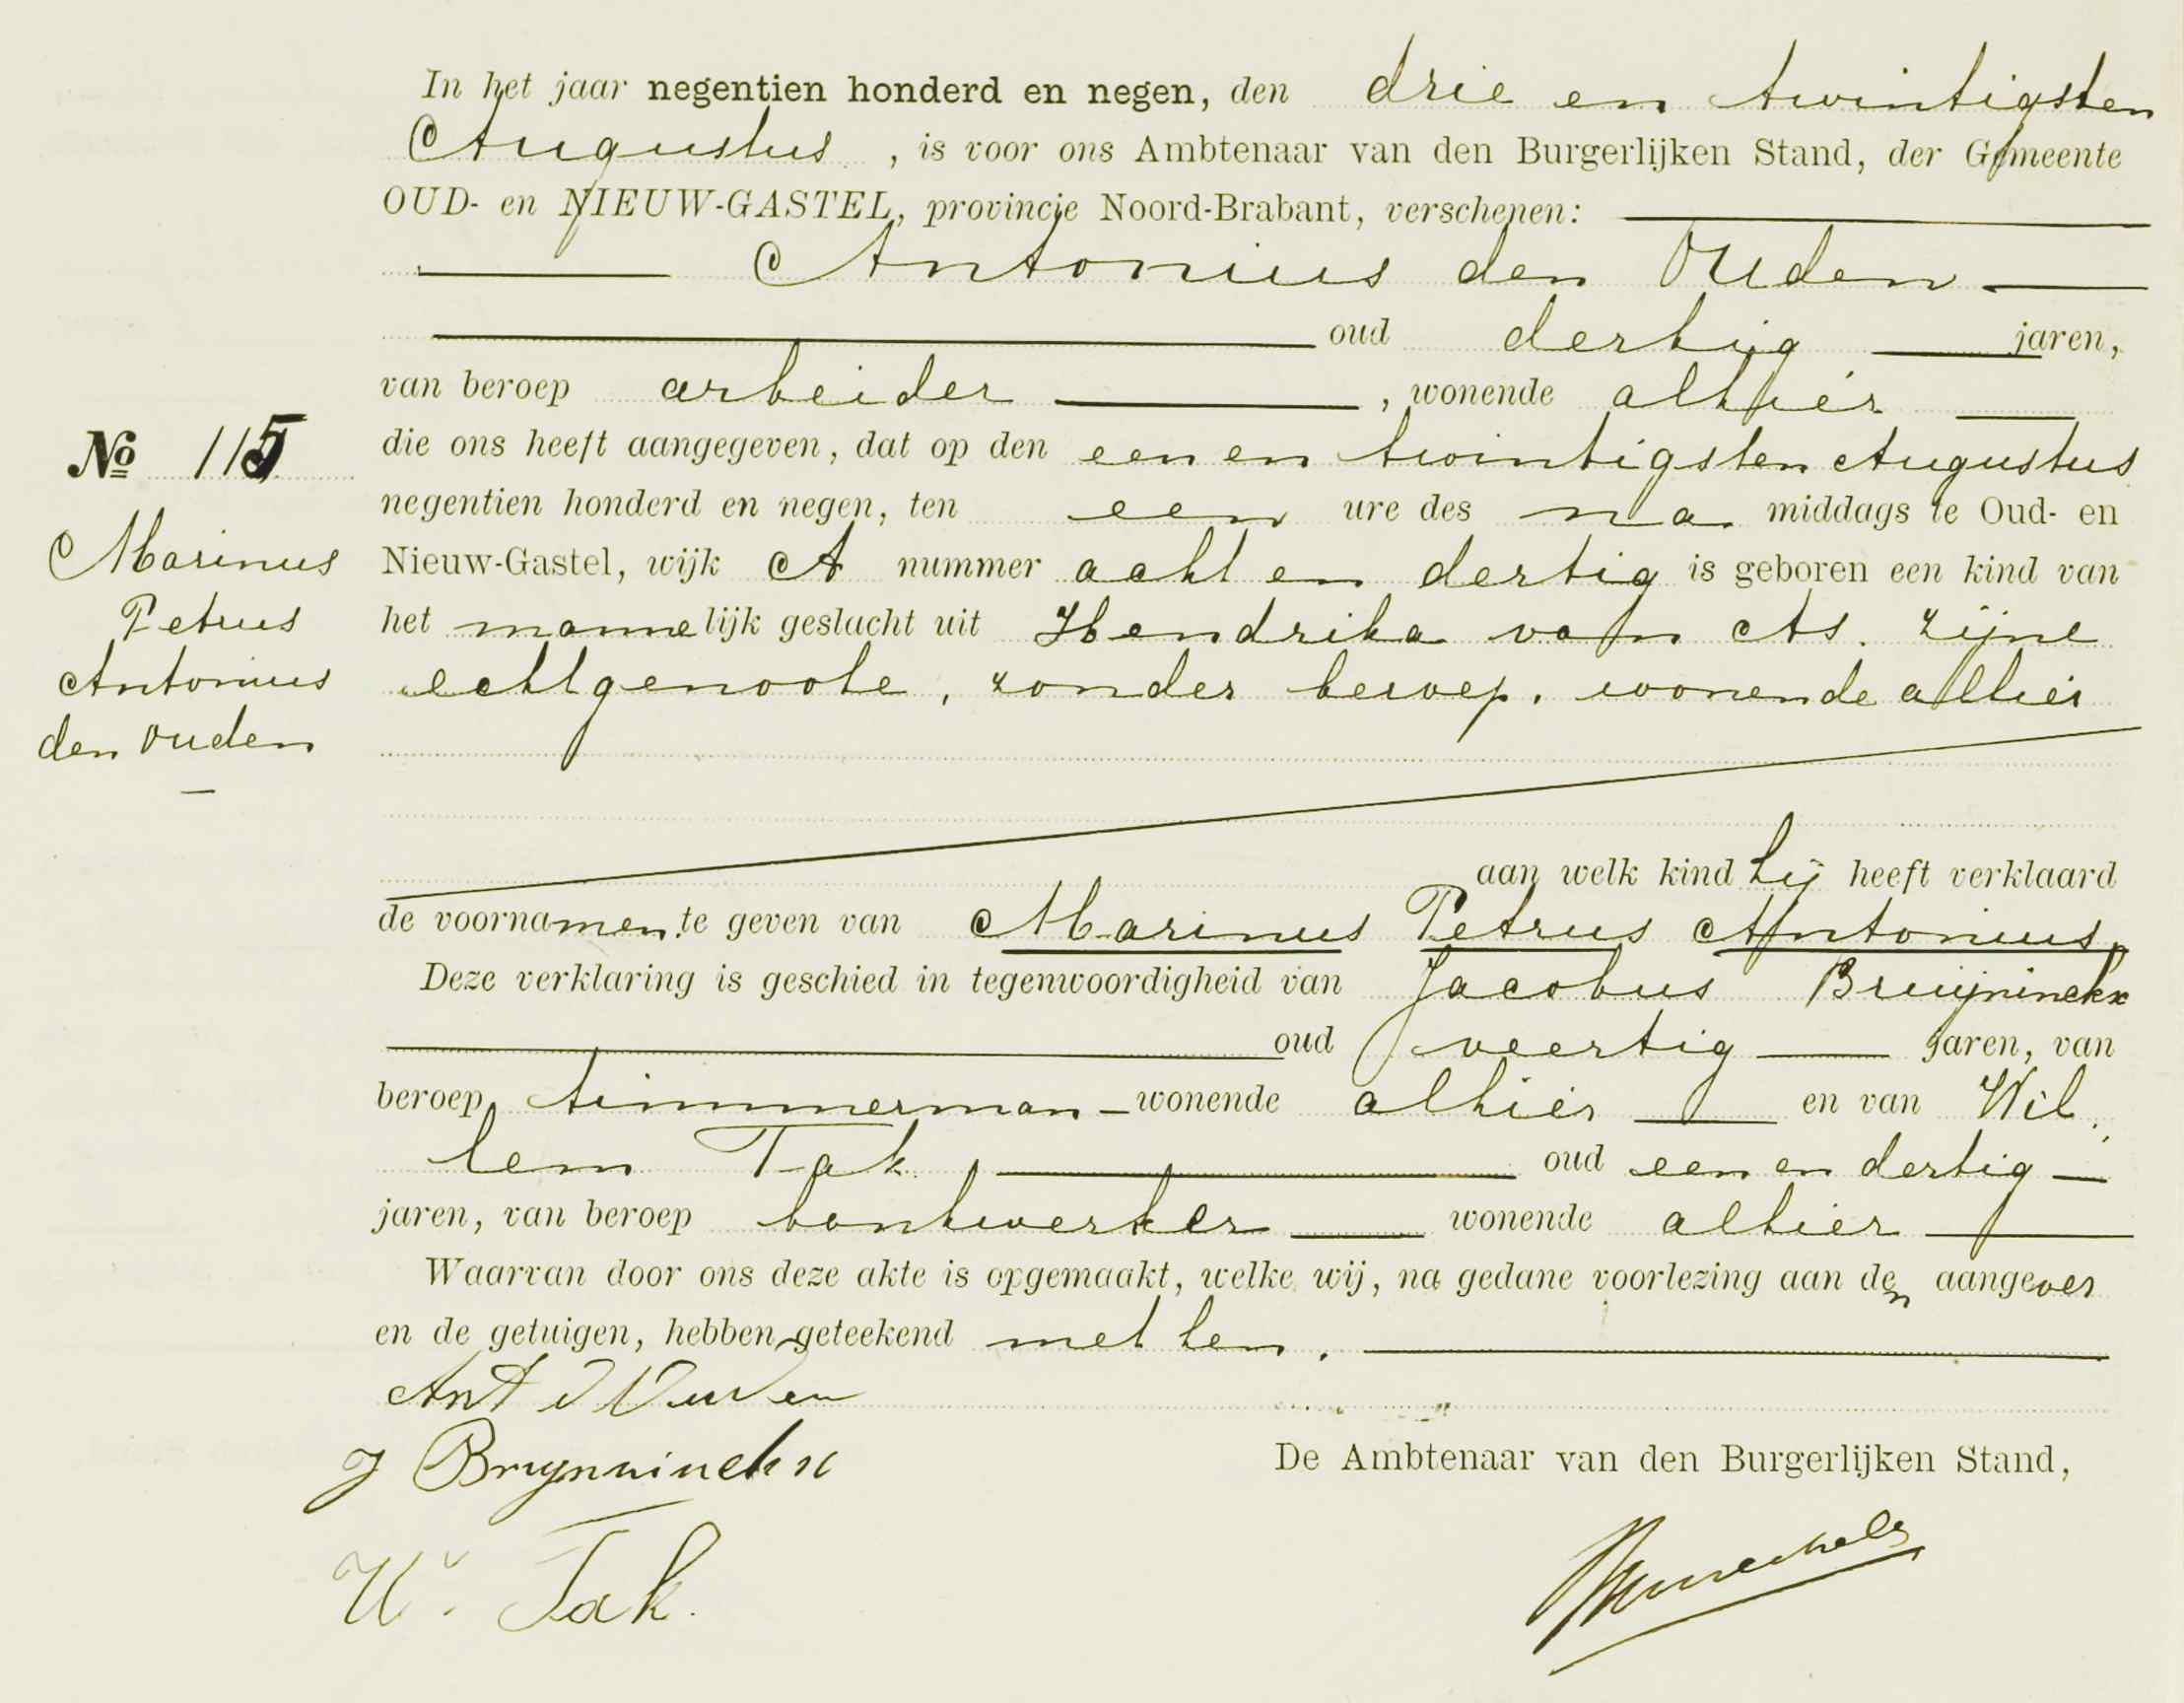 In het jaar negentien honderd en negen, den drie en twintigsten
Augustus, is voor ons Ambtenaar van den Burgerlijken Stand, der Gemeente
OUD- en NIEUW-GASTEL, provincie Noord-Brabant, verschenen:
Antonius den Ouden
oud dertig jaren,
van beroep arbeider, wonende alhier
die ons heeft aangegeven, dat op den een en twintigsten Augustus
negentien honderd en negen, ten een ure des na middags te Oud- en
Nieuw-Gastel, wijk A nummer acht en dertig is geboren een kind van
het mannelijk geslacht uit Hendrika van As. zijne
echtgenoote, zonder beroep, wonende alhier
No 115
Marinus
Petrus
Antonius
den Ouden
aan welk kind hij heeft verklaard
de voornamen te geven van Marinus Petrus Antonius,
Deze verklaring is geschied in tegenwoordigheid van Jacobus Bruijninckx
oud veertig jaren, van
beroep timmerman wonende alhier en van Wil
lem Tak, oud een en dertig
jaren, van beroep bontwerker wonende alhier
Waarvan door ons deze akte is opgemaakt, welke wij, na gedane voorlezing aan den aangever
en de getuigen, hebben geteekend met hen.
Ant d Ouden
J Bruynninckx
De Ambtenaar van den Burgerlijken Stand,
W. Tak.